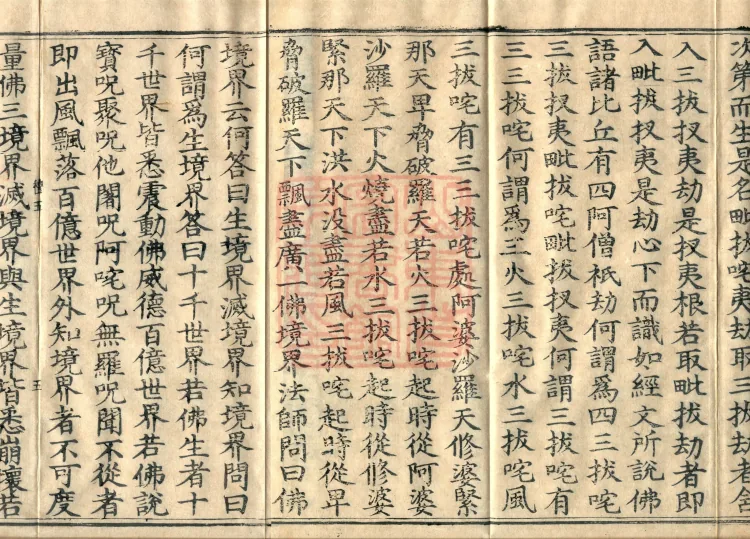 次第而生是名毗拔咤夷劫取三拔劫者
入三拔扠夷劫是扠夷根若取毗拔劫者即
入毗拔扠夷是劫心下而識如經文所說佛
語諸比丘有四阿僧祇劫何謂爲四三拔咤
三拔扠夷毗拔咤毗拔扠夷何謂三拔咤有
三三拔咤何謂爲三火三拔咤水三拔咤風
三拔咤有三三拔咤處阿婆沙羅天修婆緊
那天卑脅破羅天若火三拔咤起時從阿婆
沙羅天下火燒盡若水三拔咤起時從修婆
緊那天下洪水没盡若風三拔咤起時從卑
脅破羅天下飄盡廣一佛境界法師問曰佛
境界云何答曰生境界滅境界知境界問曰
何謂爲生境界答曰十千世界若佛生者十
千世界皆悉震動佛威德百億世界若佛說
寶呪聚呪他闍呪阿咤呪無羅呪聞不從者
即出風飄落百億世界外知境界者不可度
量佛三境界滅境界與生境界皆悉崩壞若